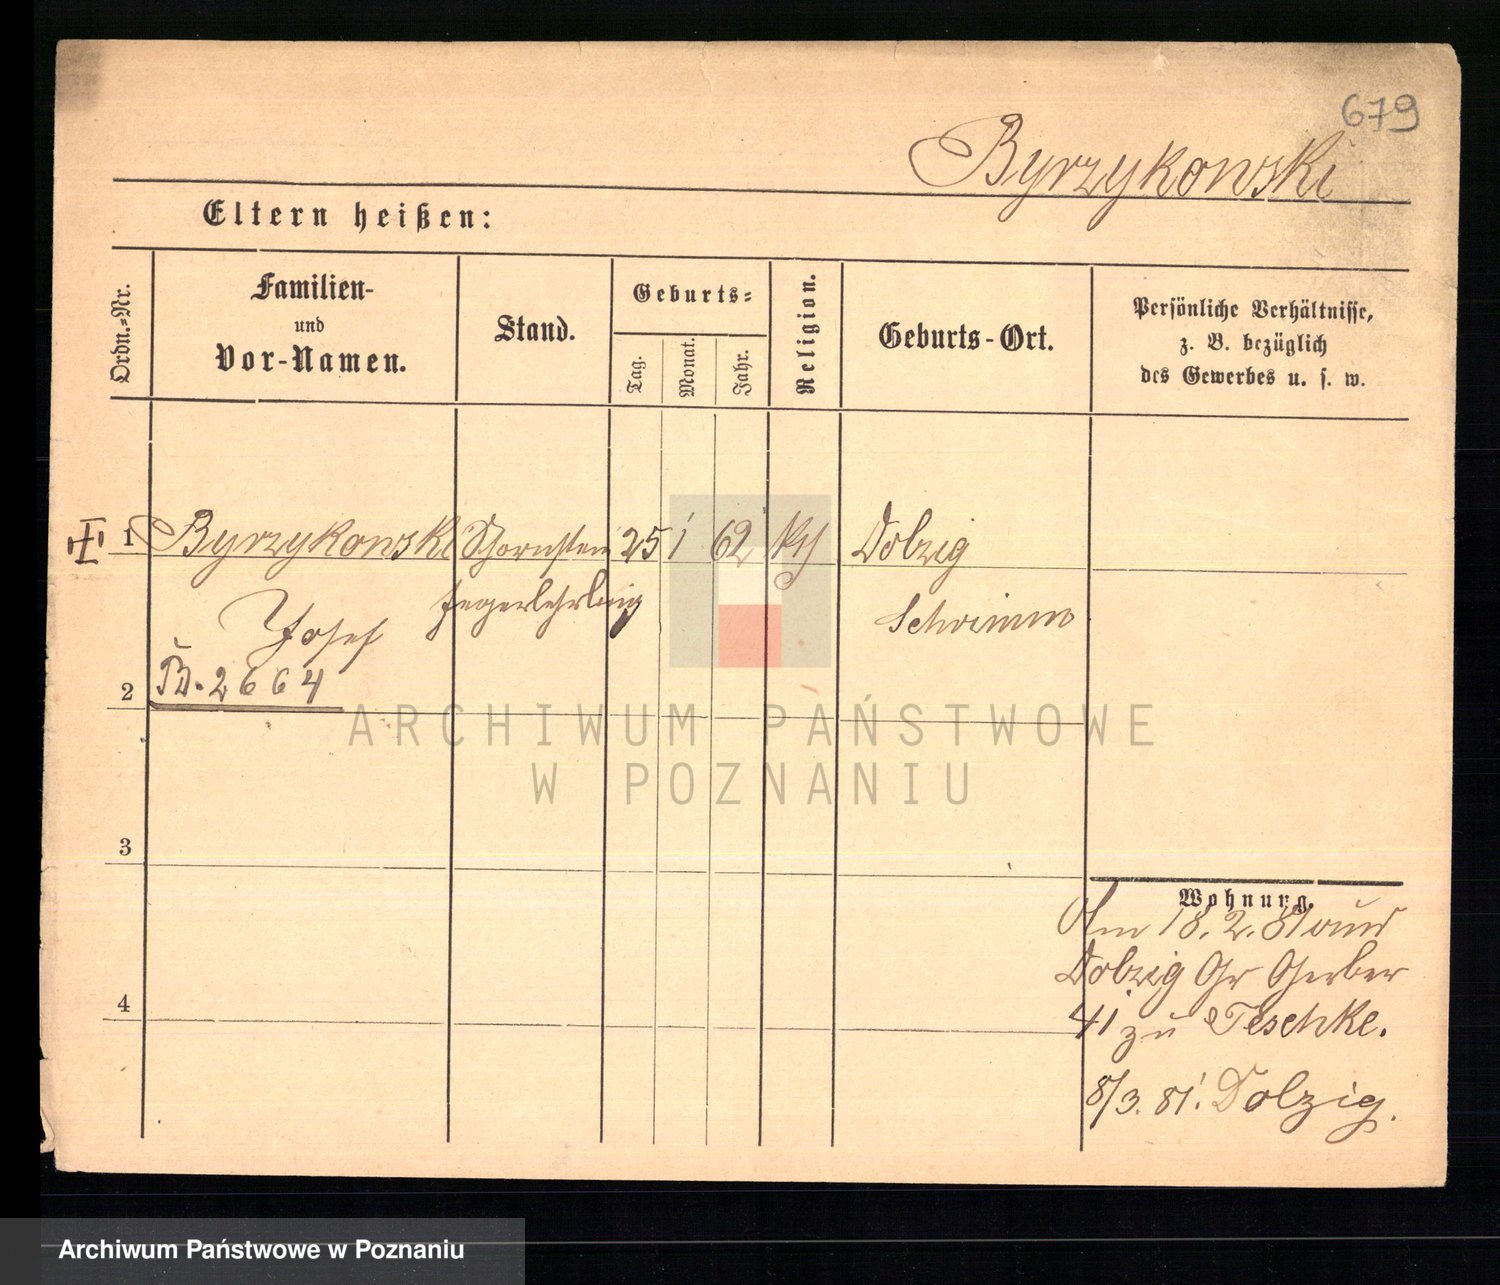 679
Byrzykowski
Eltern heißen:
Ordn.-Nr.
Familien-
und
Vor-Namen.
Stand.
Geburts-
Tag.
Monat.
Jahr.
Religion.
Geburts-Ort.
Persönliche Verhältnisse,
z. B. bezüglich
des Gewerbes u. s. w.
1 Byrzykowski Schornstein 25 1 62 kth Dolzig
fegerlehrling
Josef
Schrimm
B. 2664
2
3
4
Wohnung.
Am 18. 2. 81 aus
Dolzig Gr Gerber
41 zu Teschke.
8/3. 81. Dolzig.
ARCHIWUM PAŃSTWOWE
W POZNANIU
Archiwum Państwowe w Poznaniu